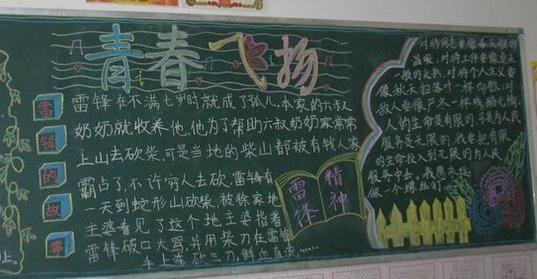 青春飞扬
雷锋的故事
雷锋在不满七岁时就成了孤儿,本家的六叔
奶奶就收养他,他为了帮助六叔奶奶家常常
上山去砍柴,可是当地的柴山都被有钱人家
霸占了,不许穷人去砍,雷锋有
一天到蛇形山砍柴,被徐家地
主婆看见了这个地主婆指着
雷锋破口大骂并用柴刀在雷锋
手上连砍三刀,鲜血直流……
雷锋
精神
对待同志要像春天般的
温暖,对待工作要像夏天
一般的火热,对待个人主义要
像秋天扫落叶一样,对待
敌人要像严冬一样残酷无情
人的生命是有限的,可是为人民
服务是无限的,我要把有限
的生命投入到无限的为人民
服务中去,我愿永远
做一个螺丝钉
上。